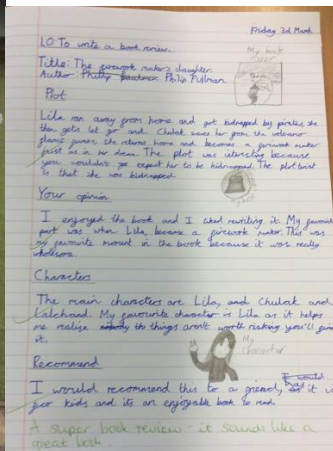 Friday 3rd March
LO To write a book review.
My book
cover
Title: The firework makers daughter.
Author: Philip Pullman
Plot
Lila ran away from home and got kidnapped by pirates she
then gets let go and Chulak saves her from the volcano
flames she returns home and becomes a firework maker
just as in her dream. The plot was interesting because
you wouldn't expect her to be kidnapped. The plot twist
is that she was kidnapped
Your opinion
I enjoyed the book and I liked rewriting it. My favourite
part was when Lila became a firework maker. This was
my favourite moment in the book because it was really
wholesome.
Characters
The main characters are Lila, and Chulak and
Kalchand. My favourite character is Lila as it helps
me realise things aren't worth risking
it.
My
character
Recommend
I would
I would recommend this to a friend, as it
for kids and its an enjoyable book to read.
A super book review - it sounds like a
great book